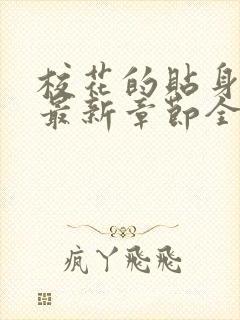 校花的贴身
最新章节全
疯丫飛飛